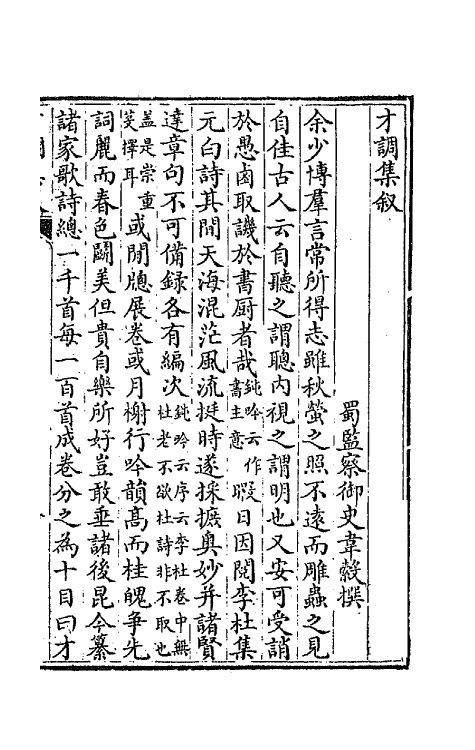 才調集叙
蜀監察御史韋縠撰
余少博羣言常所得志雖秋螢之照不遠而雕蟲之見
自佳古人云自聽之謂聰内視之謂明也又安可受誚
於愚鹵取譏於書厨者哉鈍吟云作書主意暇日因閱李杜集
元白詩其間天海混茫風流挺特遂採摭奥妙并諸賢
達章句不可備録各有編次鈍吟云序云李杜卷中無杜老不欲杜詩非不取也
盖是崇重茭擇耳或閒牕展卷或月榭行吟韻髙而桂魄争先
詞麗而春色鬭美但貴自樂所好豈敢垂諸後昆今纂
諸家歌詩總一千首每一百首成卷分之為十目曰才